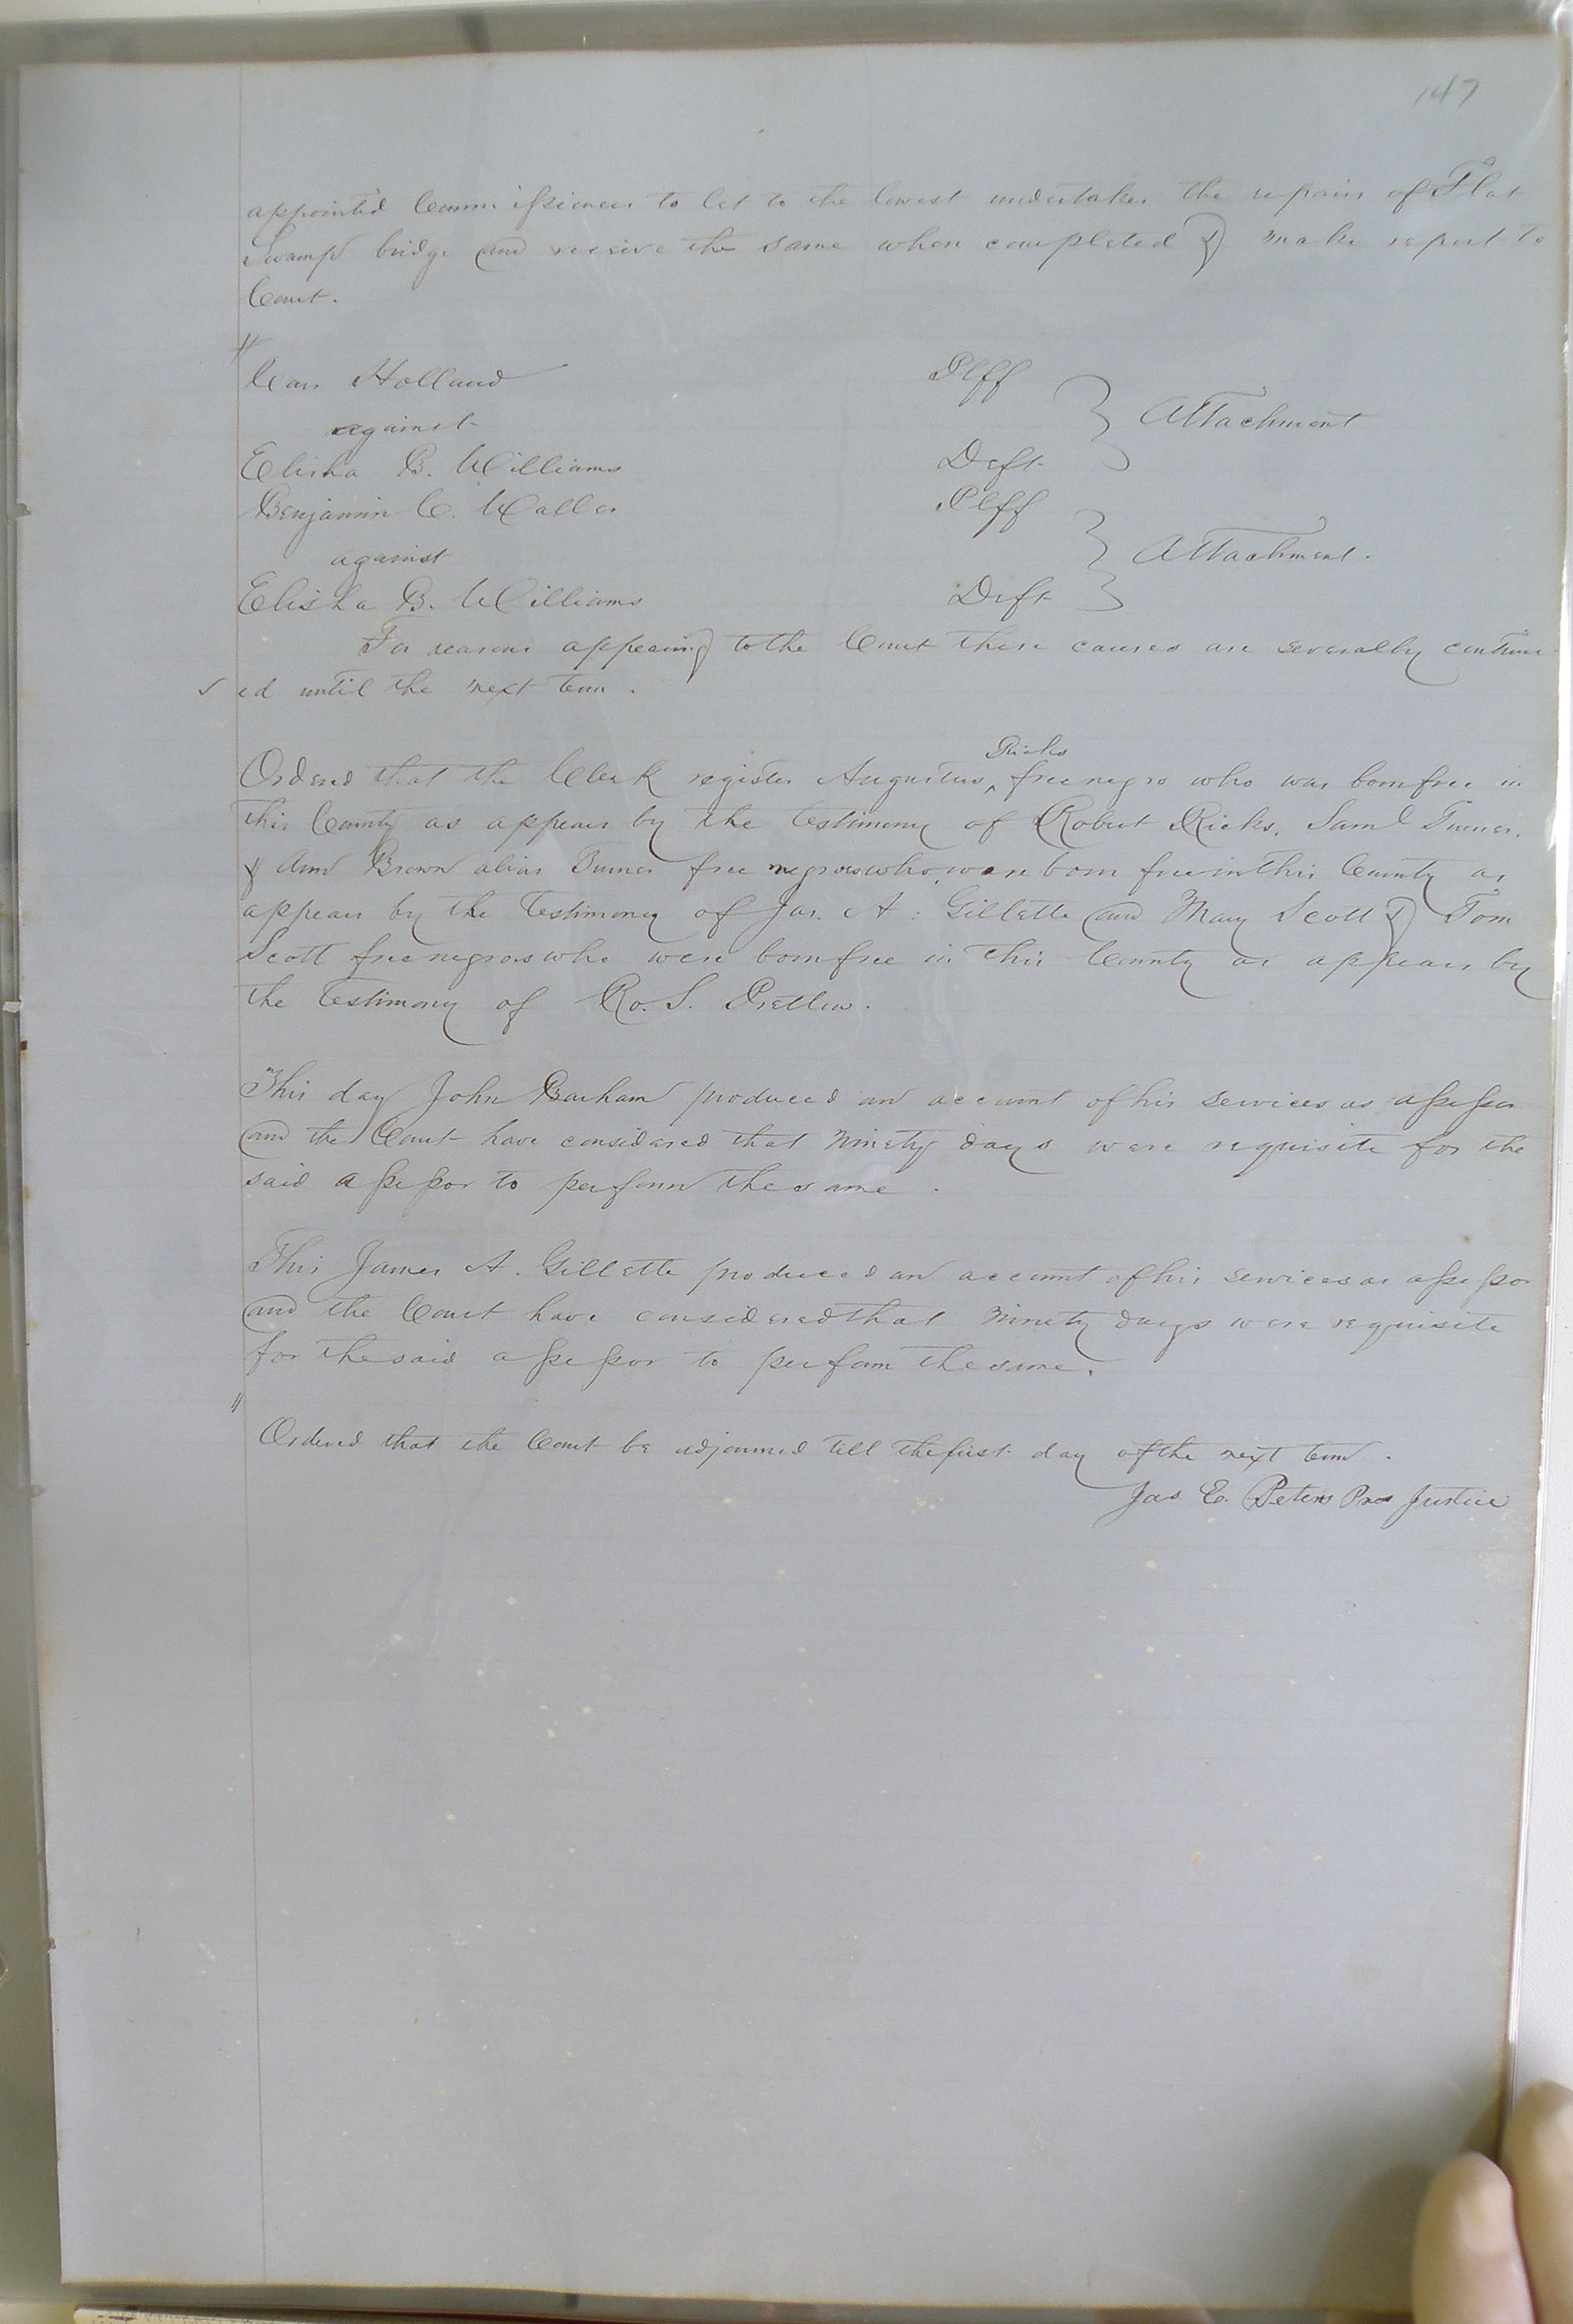 147
appointed Commissioners to let to the lowest undertaker the repairs of Flat
Swamp bridge and receive the same when completed & make report to
Court.
Holland Plff
against Attachment
Elisha B. Williams Deft
Benjamin C. Waller Plff
against Attachment.
Elisha B. Williams Deft
For reasons appearing to the Court these causes are severally continu
ed until the next term.
Ricks
Ordered that the Clerk register Augustus ^ free negro who was born free in
this County as appears by the testimony of Robert Ricks, Saml Turner,
& Ann Brown alias Turner free negroes who were born free in this County as
appears by the testimony of Jas. A. Gillette and Mary Scott & Tom
Scott free negroes who were born free in this County as appears by
the testimony of Ro. S. Pretlow.
This day John Barham produced an account of his services as assessor
and the Court have considered that ninety days were requisite for the
said assessor to perform the same.
This James A. Gillette produced an account of his services as assessor
and the Court have considered that ninety days were requisite
for the said assessor to perform the same.
Ordered that the Court be adjourned till the first day of the next term.
Jas. E. Peters Pres Justice